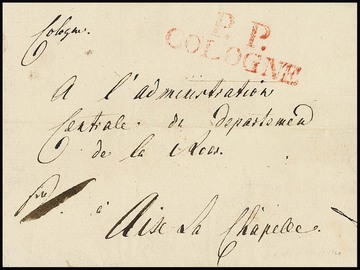 Cologne.
P. P.
COLOGNE
A l'administration
Centrale du Departement
de la Roer
à
Aix La Chapelle.